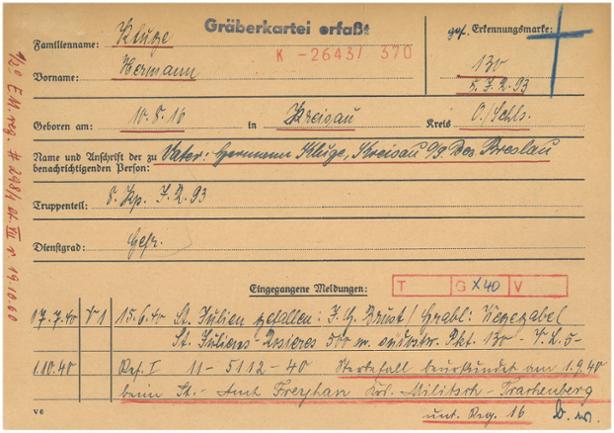 Gräberkartei erfaßt
K - 26437 370
Familienname: Kluge
gef. Erkennungsmarke:
Vorname: Hermann
130
5. J.R. 93
Geboren am: 10.8.16 in Kreisau Kreis O./Schls.
Name und Anschrift der zu benachrichtigenden Person: Vater: Hermann Kluge, Kreisau Breslau
Truppenteil: 8. Kp. J.R. 93
Dienstgrad: Gefr.
Eingegangene Meldungen:
T G X40 V
17.7.40 V1 15.6.40 St. Julien gefallen: J.G. Brust/ Grabl: Wegegabel
St. Julieres-Rosieres 500 m Pkt. 130 - V.L.5-
1.10.40 Ref. I 11-5112-40 Sterbefall beurkundet am 1.9.40
beim St.- Amt Freyhan Krs. Militsch-Trachenberg
unt. Reg. 16
V6